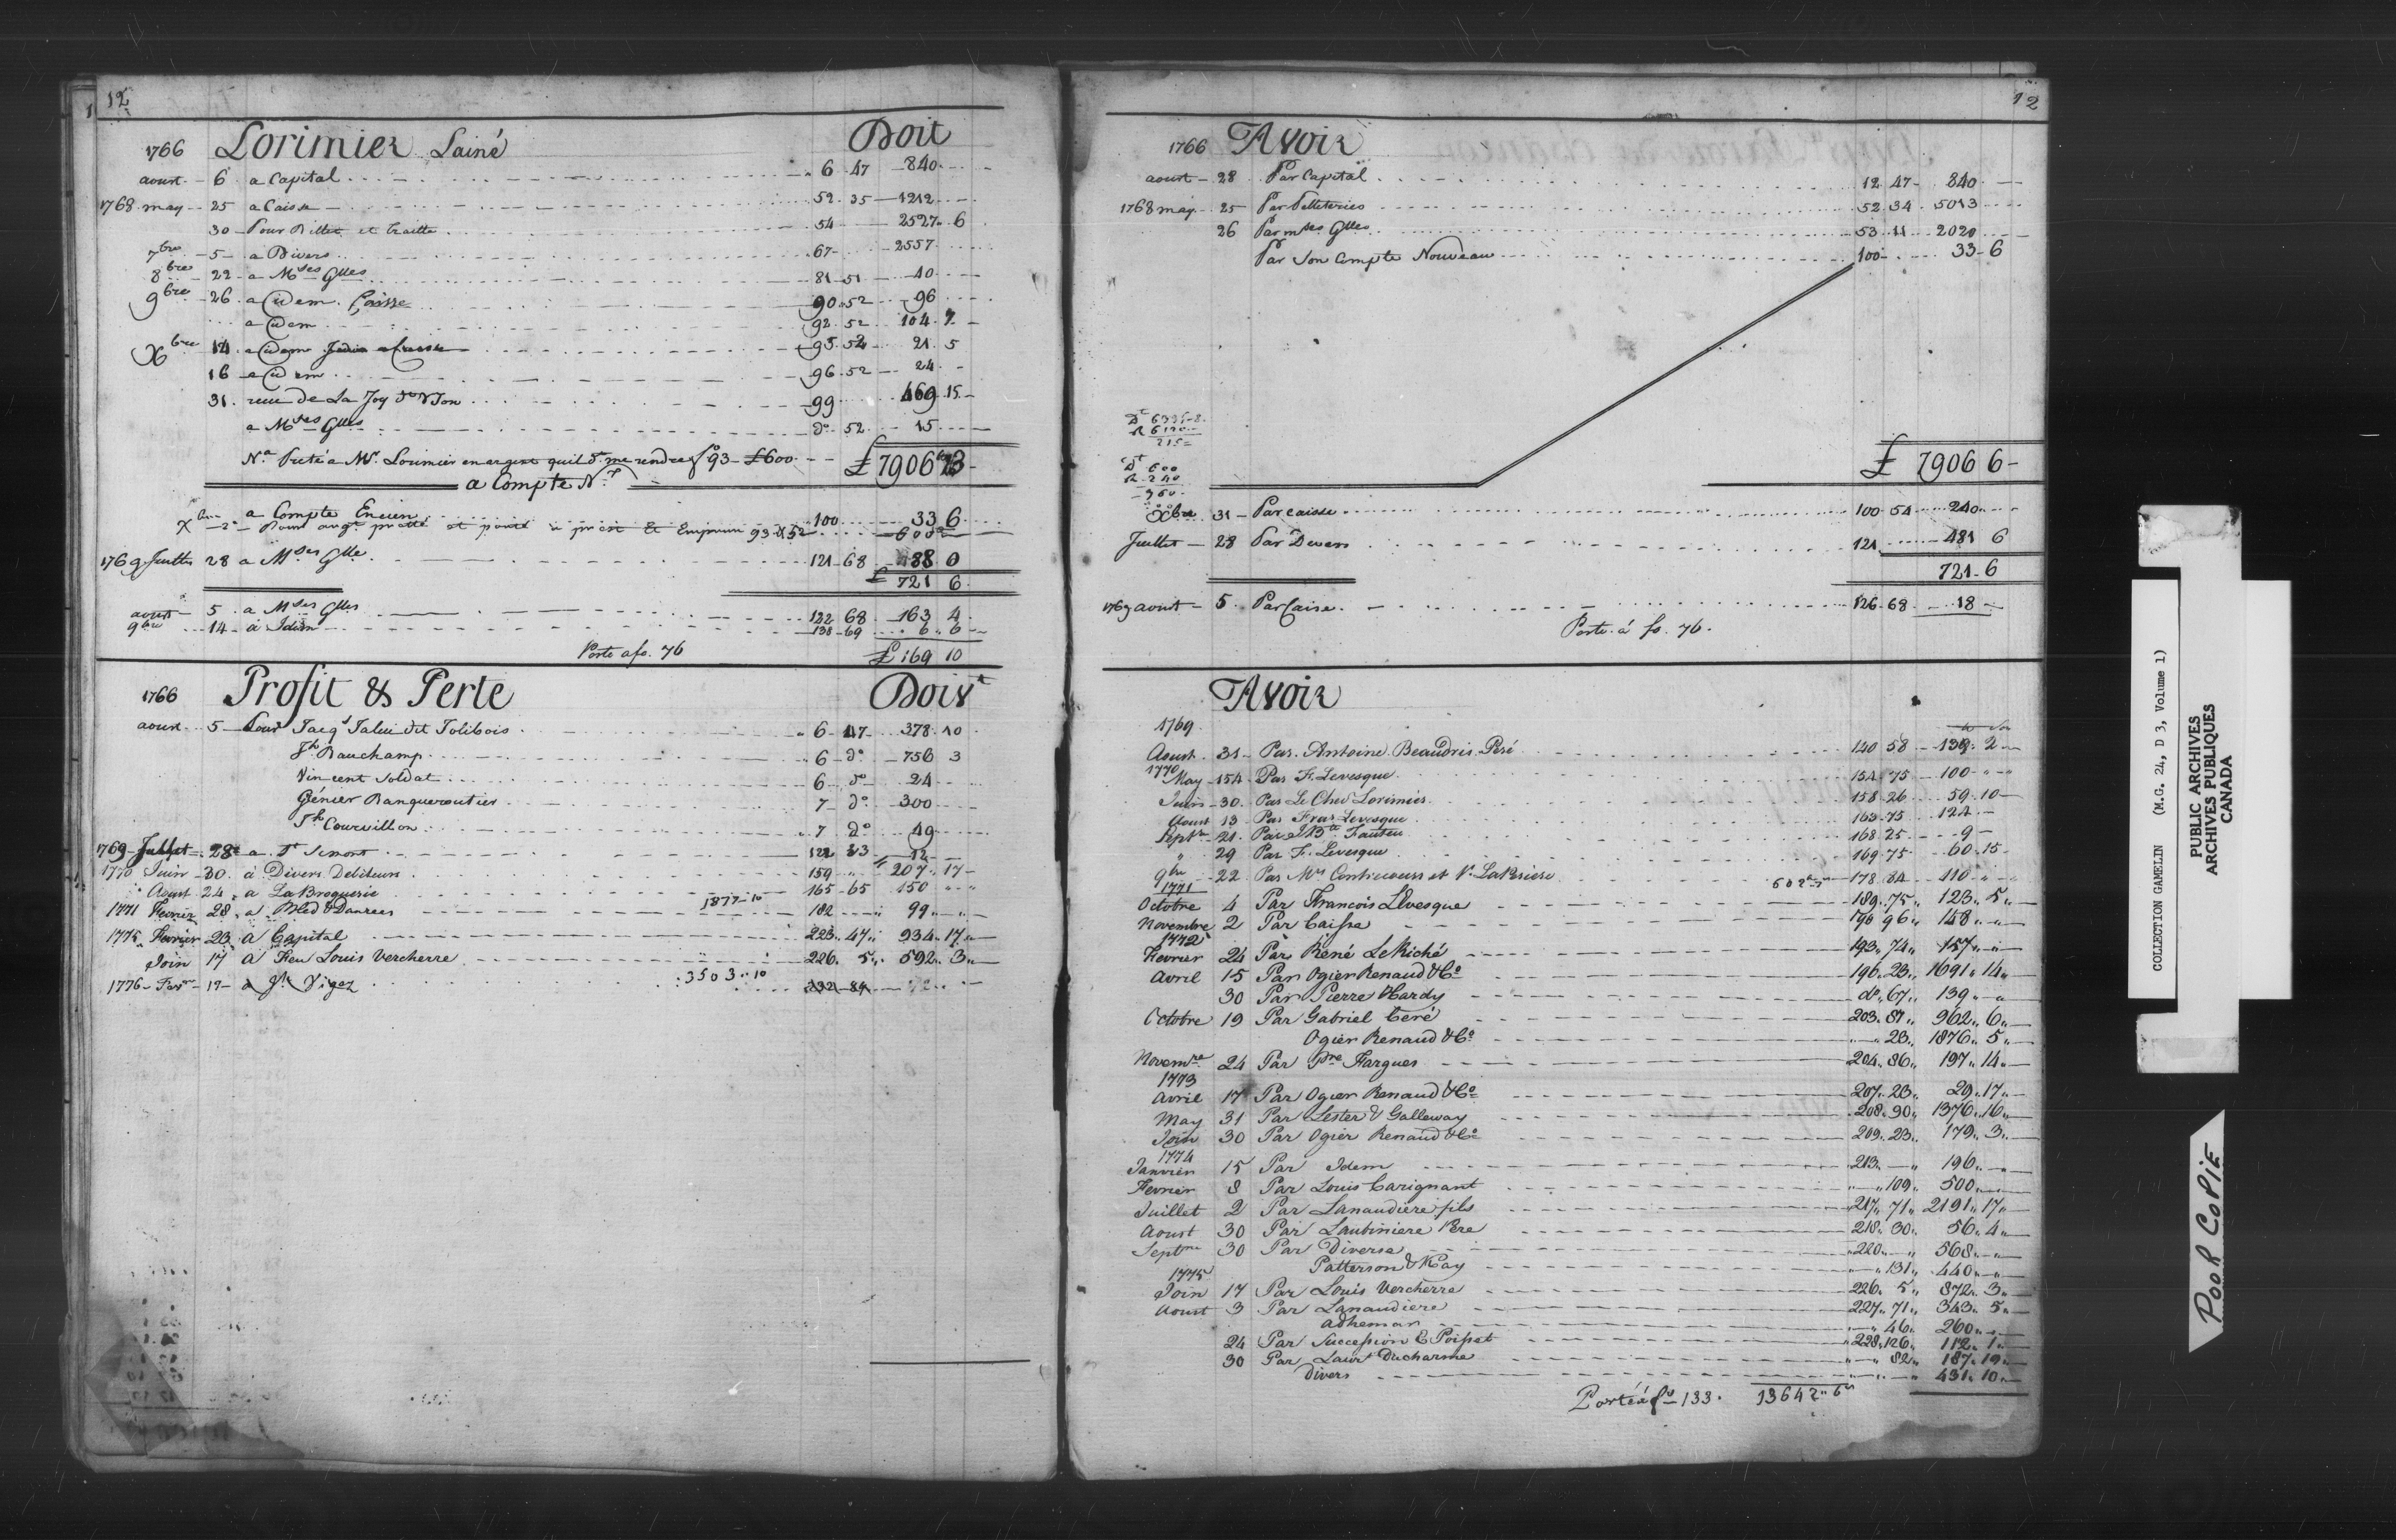 12
1766 Lorimier Lainé Doit
aoust 6 a Capital 6 47 840
1768 may 25 a Caisse 52 35 1212
30 Pour Billet et traitte 54 2527 6
7bre 5 a Divers 67 2557
8bre 22 a Mses Glles 81 51 40
9bre 26 a idem Caisse 90 52 96
a idem 92 52 104 7
Xbre 14 a idem 95 52 21 5
16 a idem 96 52 24
31 de La Joy 99 469 15
a Mses Glles do 52 15
Na Preté a Mr. Lorimier en argent quil dt. me rendre fo 93 £600 £ 7906 13
a Compte Nx
a Compte Encien 100 33 6
Xbre 2 93 & 52 600
1769 Juillet 28 a Mses Glle 121 68 88 0
£ 721 6
aoust 5 a Mses Glles 122 68 163 4
9bre 14 à Idem 138 69 6 6
Porté a fo. 76 £ 169 10
1766 Profit & Perte Doivt
aoust 5 Pour Jacqs Talieu dit Jolibois 6 47 378 10
Jh Bauchamp 6 do 756 3
Vincent Soldat 6 do 24
Génier Banqueroutier 7 do 300
Jh Courvillon 7 do 49
1769 Juillet 28 a 121 33 12
1770 Juin 30 à Divers Debiteurs 159 207 17
Aoust 24 a La Broquerie 165 65 150
1771 Fevrier 28 a Bled & Danrees 1877-10 182 99
1775 Fevrier 23 a Capital 223 47 934 17
Join 17 a Feu Louis Vercherre 226 5 592 3
1776 Fevr 19 a Jh Viger 3503 10 232 89
12
1766 Avoir
aoust 28 Par Capital 12 47 840
1768 may 25 Par Pelleteries 52 34 5013
26 Par mses Glles 53 11 2020
Par Son Compte Nouveau 100 33 6
Dt 600
R 240
£ 7906 6
Xbre 31 Par caisse 100 54 240
Juillet 28 Par Divers 121 481 6
721 6
1769 aoust 5 Par Caisse 126 68 18
Porté à fo. 76.
Avoir
1769
Aoust 31 Par Antoine Beaudris Peré 140 58 139 2
1770
May 154 Par F. Levesque 154 75 100
Juin 30 Par Le Chev Lorimier 158 26 59 10
Aoust 13 Par Fras Levesque 163 75 124
Septre 21 Par J Bte Fauteu 168 25 9
29 Par F. Levesque 169 75 60 15
9bre 22 Par Mrs Contrecoeur et 178 84 110
1771
Octobre 4 Par Francois Levesque 189 75 123 5
Novembre 2 Par Caisse 190 96 148
1772
Fevrier 24 Par René Le Riché 193 74 157
Avril 15 Par Ogier Renaud & Co 196 23 1691 14
30 Par Pierre Hardy do 67 139
Octobre 19 Par Gabriel Ceré 203 87 962 6
Ogier Renaud & Co 23 1876 5
Novemre 24 Par Pre Fargues 204 86 197 14
1773
Avril 17 Par Ogier Renaud & Co 207 23 29 17
May 31 Par Lester & Galleway 208 90 1376 16
Join 30 Par Ogier Renaud & Co 209 23 179 3
1774
Janvier 15 Par Idem 213 196
Fevrier 8 Par Louis Carignant 109 500
Juillet 2 Par Lanaudiere fils 217 71 2191 17
Aoust 30 Par Laubiniere Pere 218 30 56 4
Septre 30 Par Diverse 220 568
Patterson & Kay 131 440
1775
Join 17 Par Louis Vercherre 226 5 872 3
Aoust 3 Par Lanaudiere 227 71 343 5
Adhemar 46 260
24 Par Succession E Poisset 228 126 112 1
30 Par Laurt Ducharme 82 187 19
Divers 431 10
Porté à fo 133. 13642 6s
COLLECTION GAMELIN (M.G. 24, D 3, Volume 1)
PUBLIC ARCHIVES
ARCHIVES PUBLIQUES
CANADA
POOR COPIE